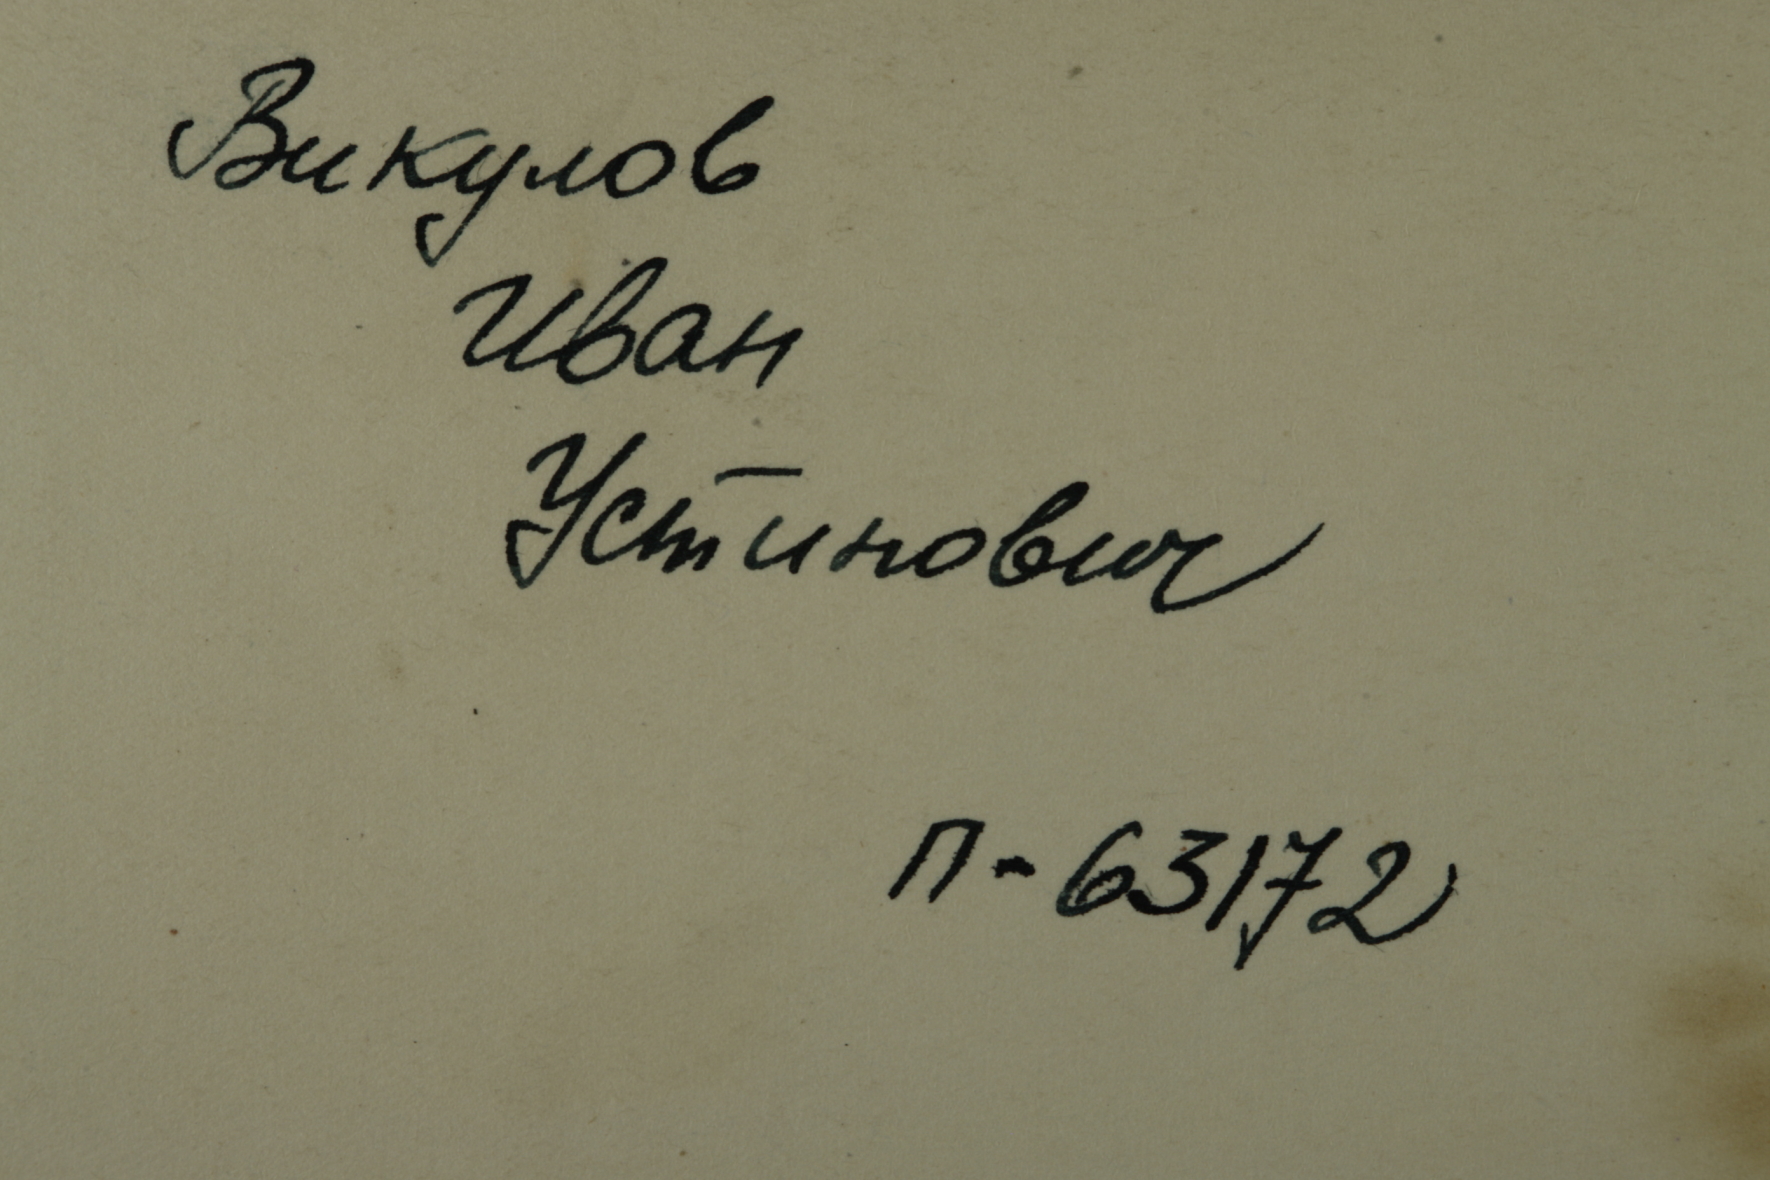 Викулов
Иван
Устинович
п-63172